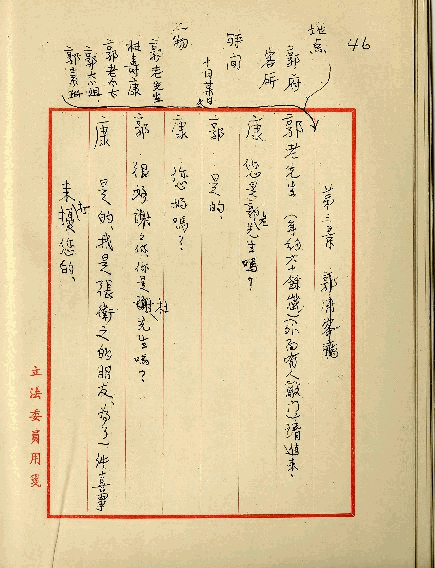 46
地点
郭府
客所
時间
十月某日
人物
郭老先生
杜壽康
郭老太太
郭大姐
郭素珊
第二幕 郭
郭老先生(年約六十餘歲)(外面有人敲门)請進来.
康 您是郭老先生嗎?
郭 是的.
康 你好嗎?
郭 很好謝之你你是杜先生嗎?
康 是的,我是張衛之的朋友,為了一件喜事
来擾您的,
立法委員用箋